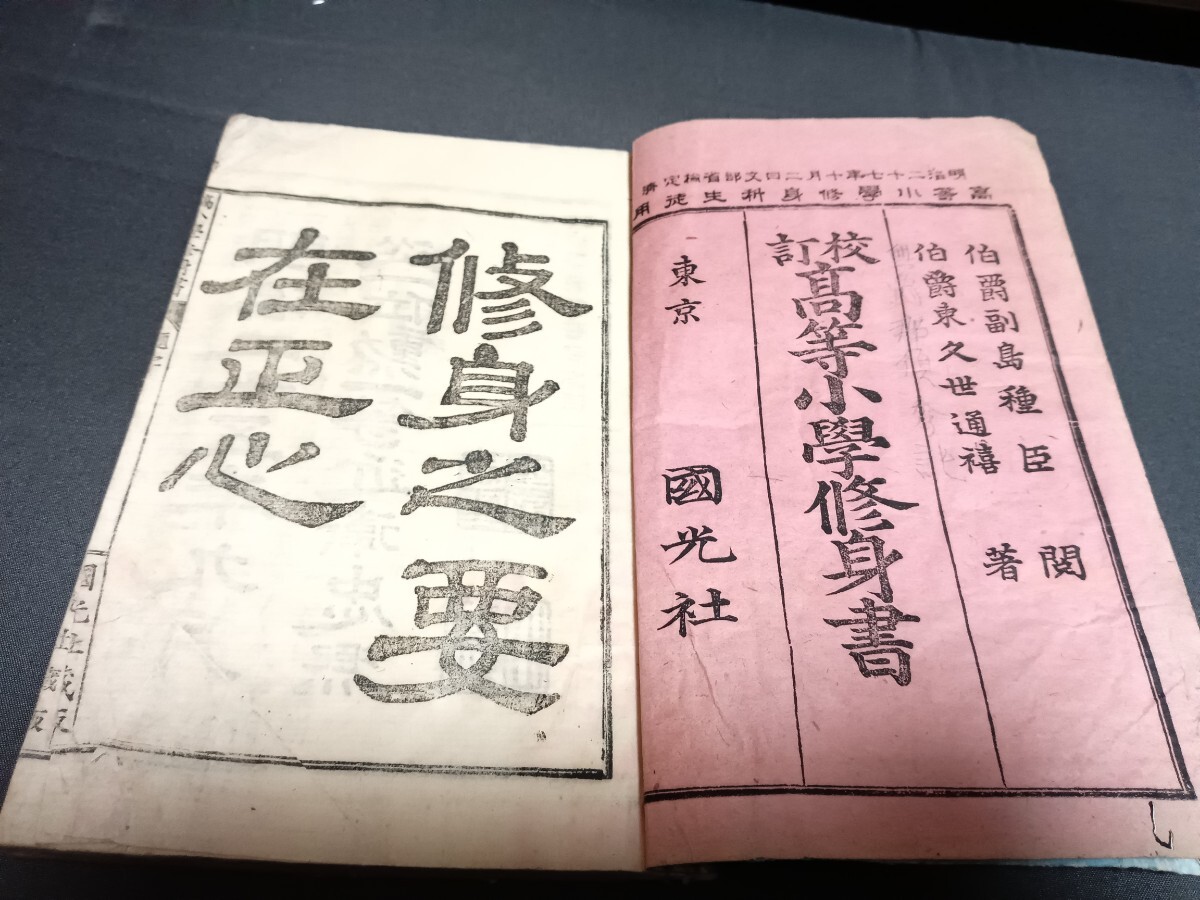 明治二十七年十月二日文部省檢定濟
高等小學修身科生徒用
伯爵副島種臣 閲
伯爵東久世通禧 著
校訂 高等小學修身書
東京 國光社
修身之要
在正心
國光社藏版